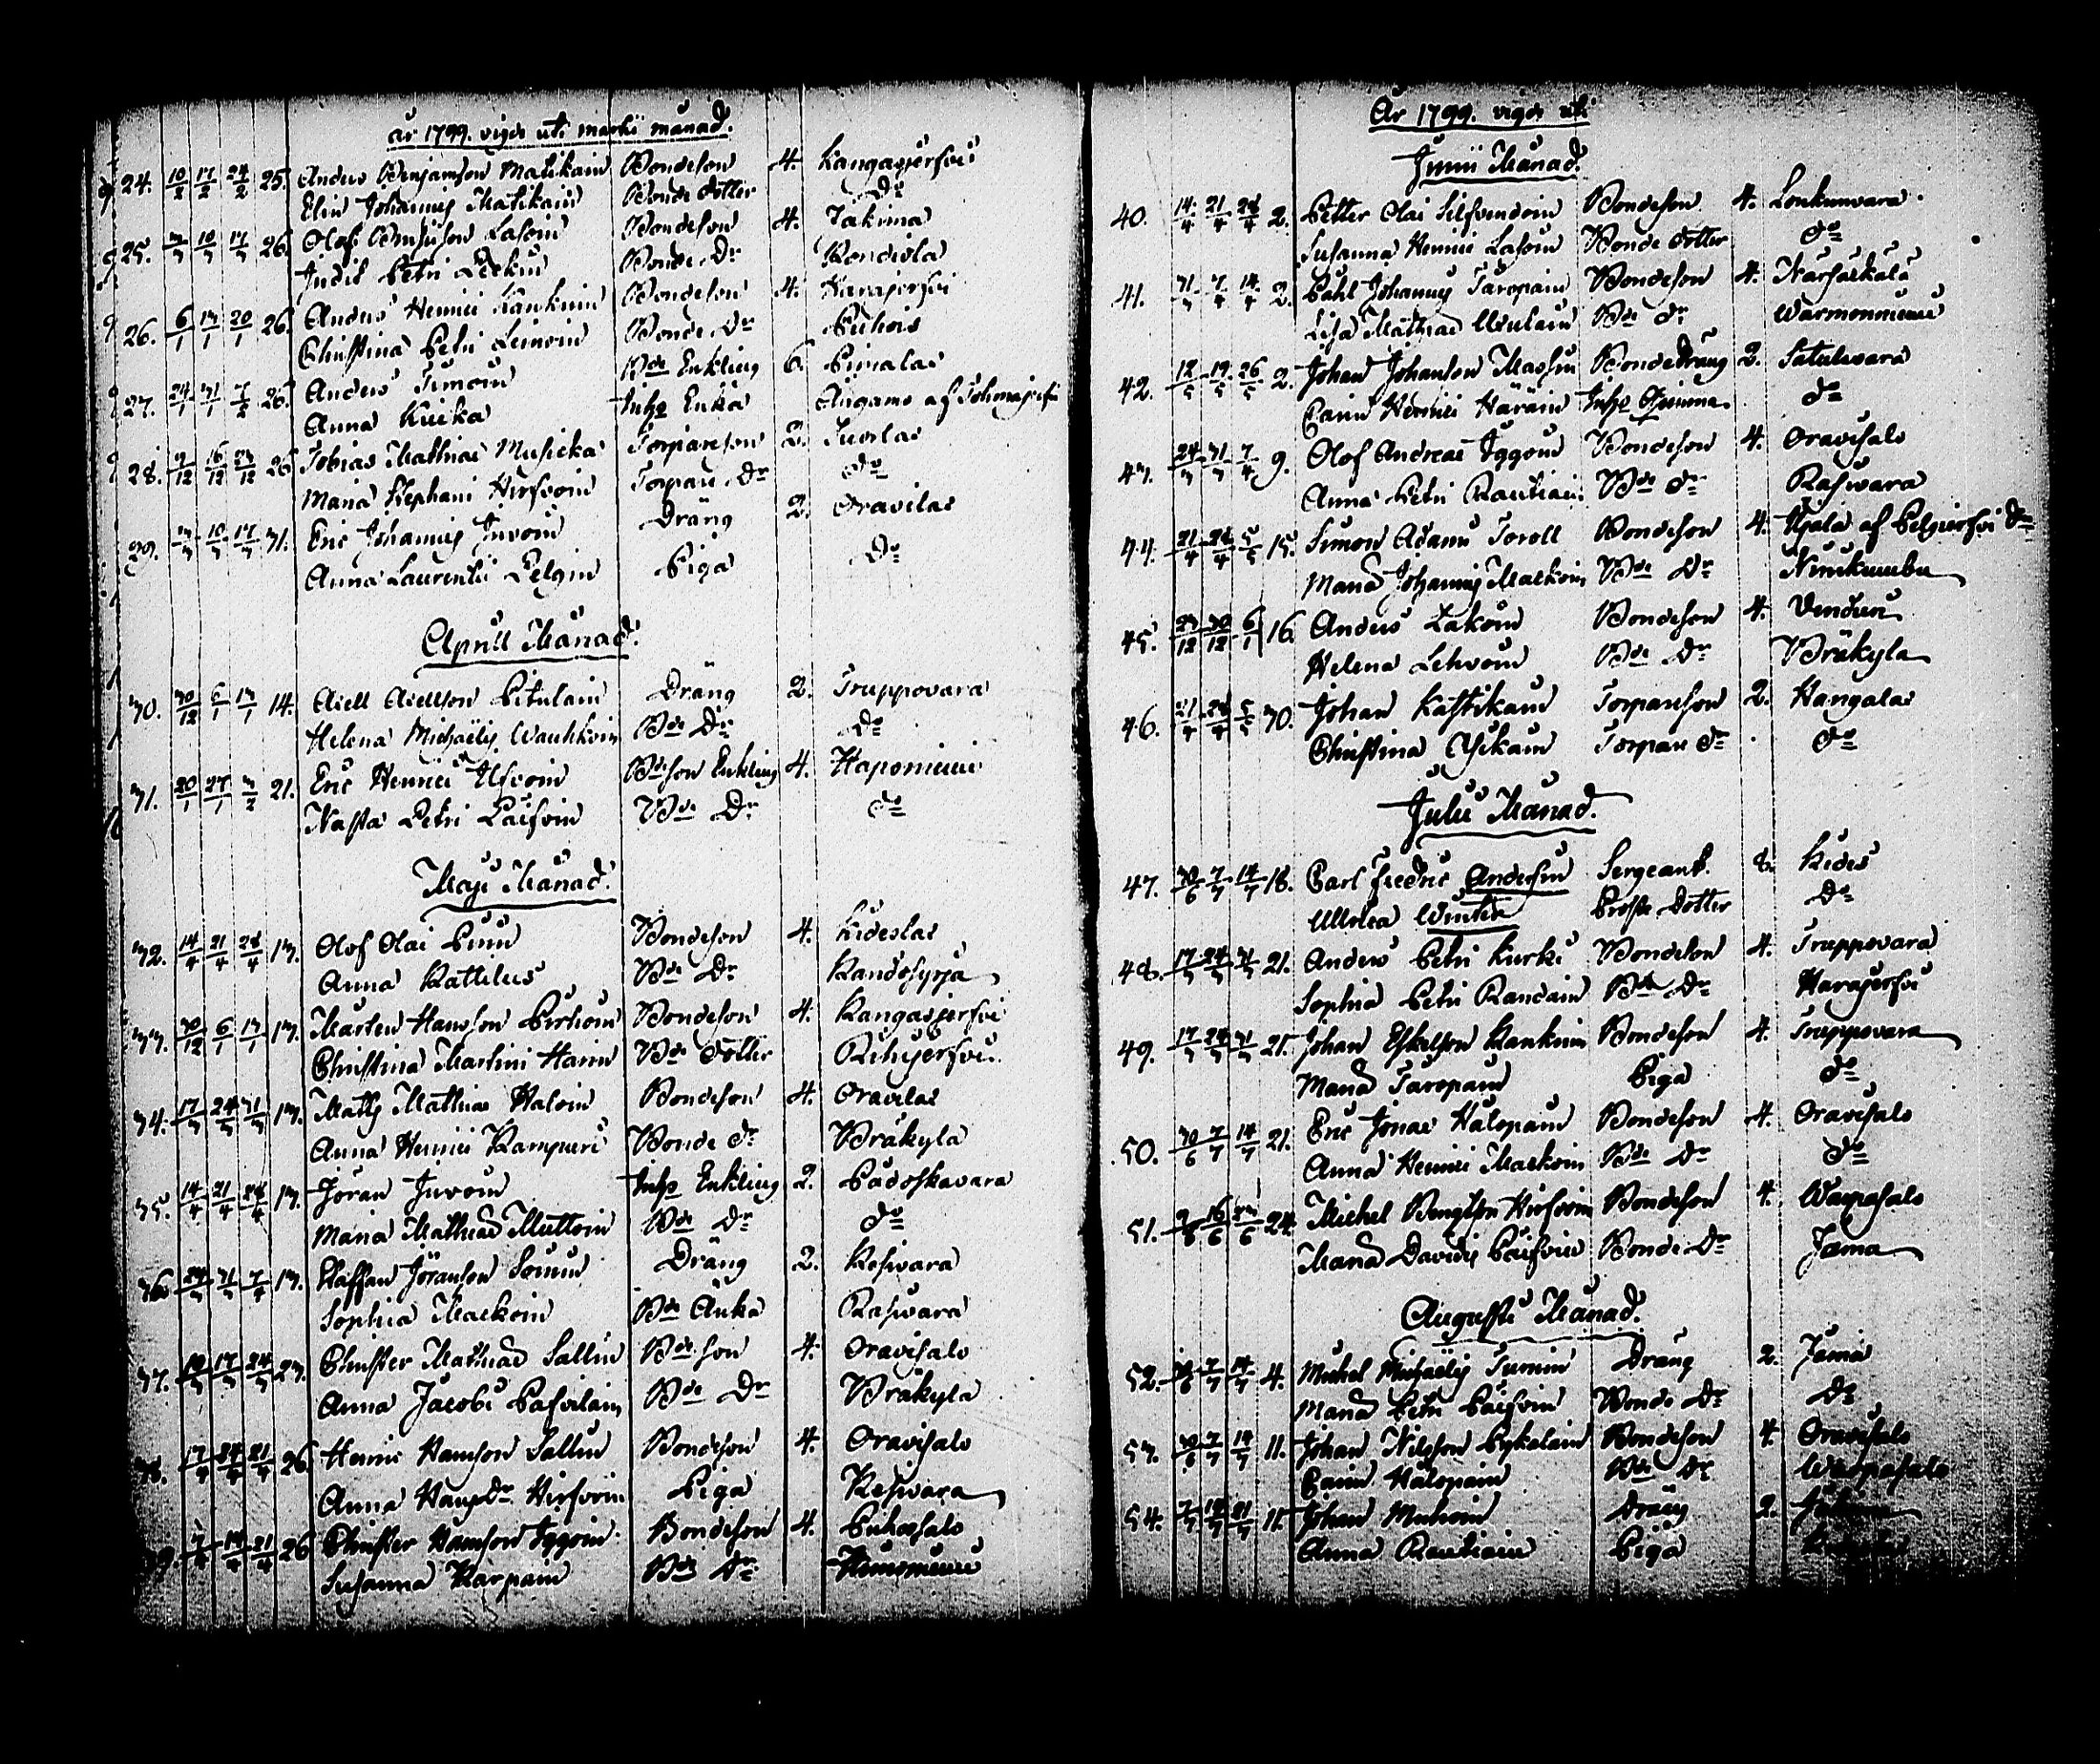 år 1799. vigde uti martii månad.
24. 10/2 17/2 24/2 25. Anders Benjamson Matikain Bondeson 4. Kangasjerfvi
Elin Johannis Matikain Bonde dotter Do
25. 3/3 10/3 17/3 26. Olof Lasoin Bondeson 4. Takima
Judit Petri Bonde Dr
26. 6/1 13/1 20/1 26. Anders Henrici Kankuin Bondeson 4. Harajerfvi
Christina Petri Leinoin Bonde Dr Puhois
27. 24/1 31/1 7/2 26. Anders Timoin Bde Enkling 6. Pimalas
Anna Kuicka Inhs Enka af Tohmajerfvi
28. 9/12 16/12 23/12 26 Tobias Mathiae Musicka Torpareson 2. Juorlas
Maria Stephani Hirfvoin Torpare Dr Do
29. 3/3 10/3 17/3 31. Eric Johannis Juvoin Dräng 2. Oravilas
Anna Laurentii Pelgin Piga Do
Aprill Månad.
30. 30/12 6/1 13/1 14. Axell Axellson Pitulain Dräng 2. Truppovara
Helena Michaëlis Wauhkoin Bde Dr Do
31. 20/1 27/1 3/2 21. Eric Henrici Ilfvoin Bdeson Enkling 4. Haponiemi
Nasta Petri Päifvin Bde Dr Do
Maji Månad.
32. 14/4 21/4 28/4 13. Olof Olai Bondeson 4. Kideslas
Anna Rattilus Bde Dr Kandosyrjä
33. 30/12 6/1 13/1 13. Mårten Hansson Pirhoin Bondeson 4. Kangasjerfvi
Christina Martini Harin Bde dotter Rihijerfvi
34. 17/3 24/3 31/3 13. Matts Mathiae Haloin Bondeson 4. Oravilas
Anna Henrici Kampuri Bonde dr Bräkylä
35. 14/4 21/4 28/4 13. Jöran Juvoin Inhs Enkling 2. Pådoskavara
Maria Mathiae Muttoin Bde Dr Do
36. 24/3 31/3 7/4 13. Staffan Jöranson Dräng 2. Kesivara
Sophia Maekoin Bde Änka Rasivara
37. 10/3 17/3 24/3 23. Christer Mathiae Sallin Bdeson 4. Oravisalo
Anna Jacobi Pasvilain Bde Dr Bräkylä
38. 26 Henric Hansson Sallin Bondeson 4. Oravisalo
Anna Hansdr Hirfvoin Piga Kesivara
39. 7/4 14/4 21/4 26 Christer Hanson Iggoin Bondeson 4. Puhossalo
Susanna Karpain Bde Dr
År 1799. vigde uti
Junii Månad.
40. 14/4 21/4 28/4 2. Petter Olai Silfvendoin Bondeson 4. Loukunvara
Susanna Henrici Lasoin Bonde dotter do
41. 31/3 7/4 14/4 2. Påhl Johannis Taropain Bondeson 4. Närsäkälä
Lisa Mathiae Bde dr Warmonniemi
42. 12/5 19/5 26/5 2. Johan Johanson Bondedräng 2. Satulavara
Carin Henrici Häräin Inhs Qvinna do
43. 24/3 31/3 7/4 9. Olof Andreae Iggoin Bondeson 4. Oravisalo
Anna Petri Rautiain Bde dr Rasivara
44. 21/4 28/4 5/5 15. Simon Adami Toroll Bondeson 4. af Pelgjerfvi
Maria Johannis Maekoin Bde Dr Niinikumbu
45. 23/12 30/12 6/1 16. Anders Lakoin Bondeson 4.
Helena Lehvoin Bde Dr Bräkylä
46. 21/4 28/4 5/5 30. Johan Kastikain Torpareson 2. Hangalas
Christina Torpare dr do
Julii Månad.
47. 30/6 7/7 14/7 18. Carl Fredric Andersin Sergeant. 8. Kides
Ullrica Winter Prosts Dotter Do
48. 17/3 24/3 31/3 21. Anders Petri Kurki Bondeson 4. Truppovara
Sophia Petri Randain Bde Dr Harajerfvi
49. 17/3 24/3 31/3 21. Johan Eskelson Kankuin Bondeson 4. Truppovara
Maria Taropain Piga do
50. 30/6 7/7 14/7 21. Eric Jonae Halopain Bondeson 4. Oravisalo
Anna Henrici Maekoin Bde Dr do
51. 9/6 16/6 23/6 24. Michel Bengtson Hirfvoin Bondeson 4. Warpasalo
Maria Davidis Päifvin Bonde Dr Jama
Augusti Månad.
52. 30/6 7/7 14/7 4. Michel Michaëlis Turnin Dräng 2. Jama
Maria Petri Päifvin Bonde Dr Do
53. 30/6 7/7 14/7 11. Johan Nilsson Pykäläin Bondeson 4. Oravisalo
Carin Halopain Bde Dr Warpasalo
54. 7/7 14/7 21/7 11. Johan Muhoin Dräng 2.
Anna Rautiain Piga